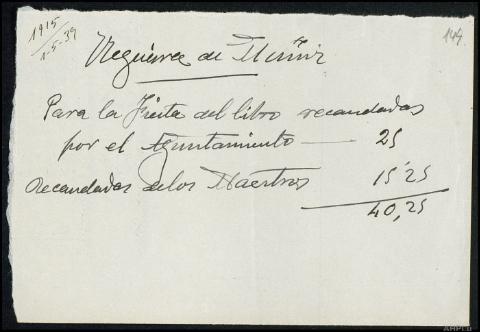 1915
1-5-39
144
Negueira de Muñiz
Para la Fiesta del libro recaudadas
por el Ayuntamiento — 25
Recaudadas de los Maestros 15'25
40,25